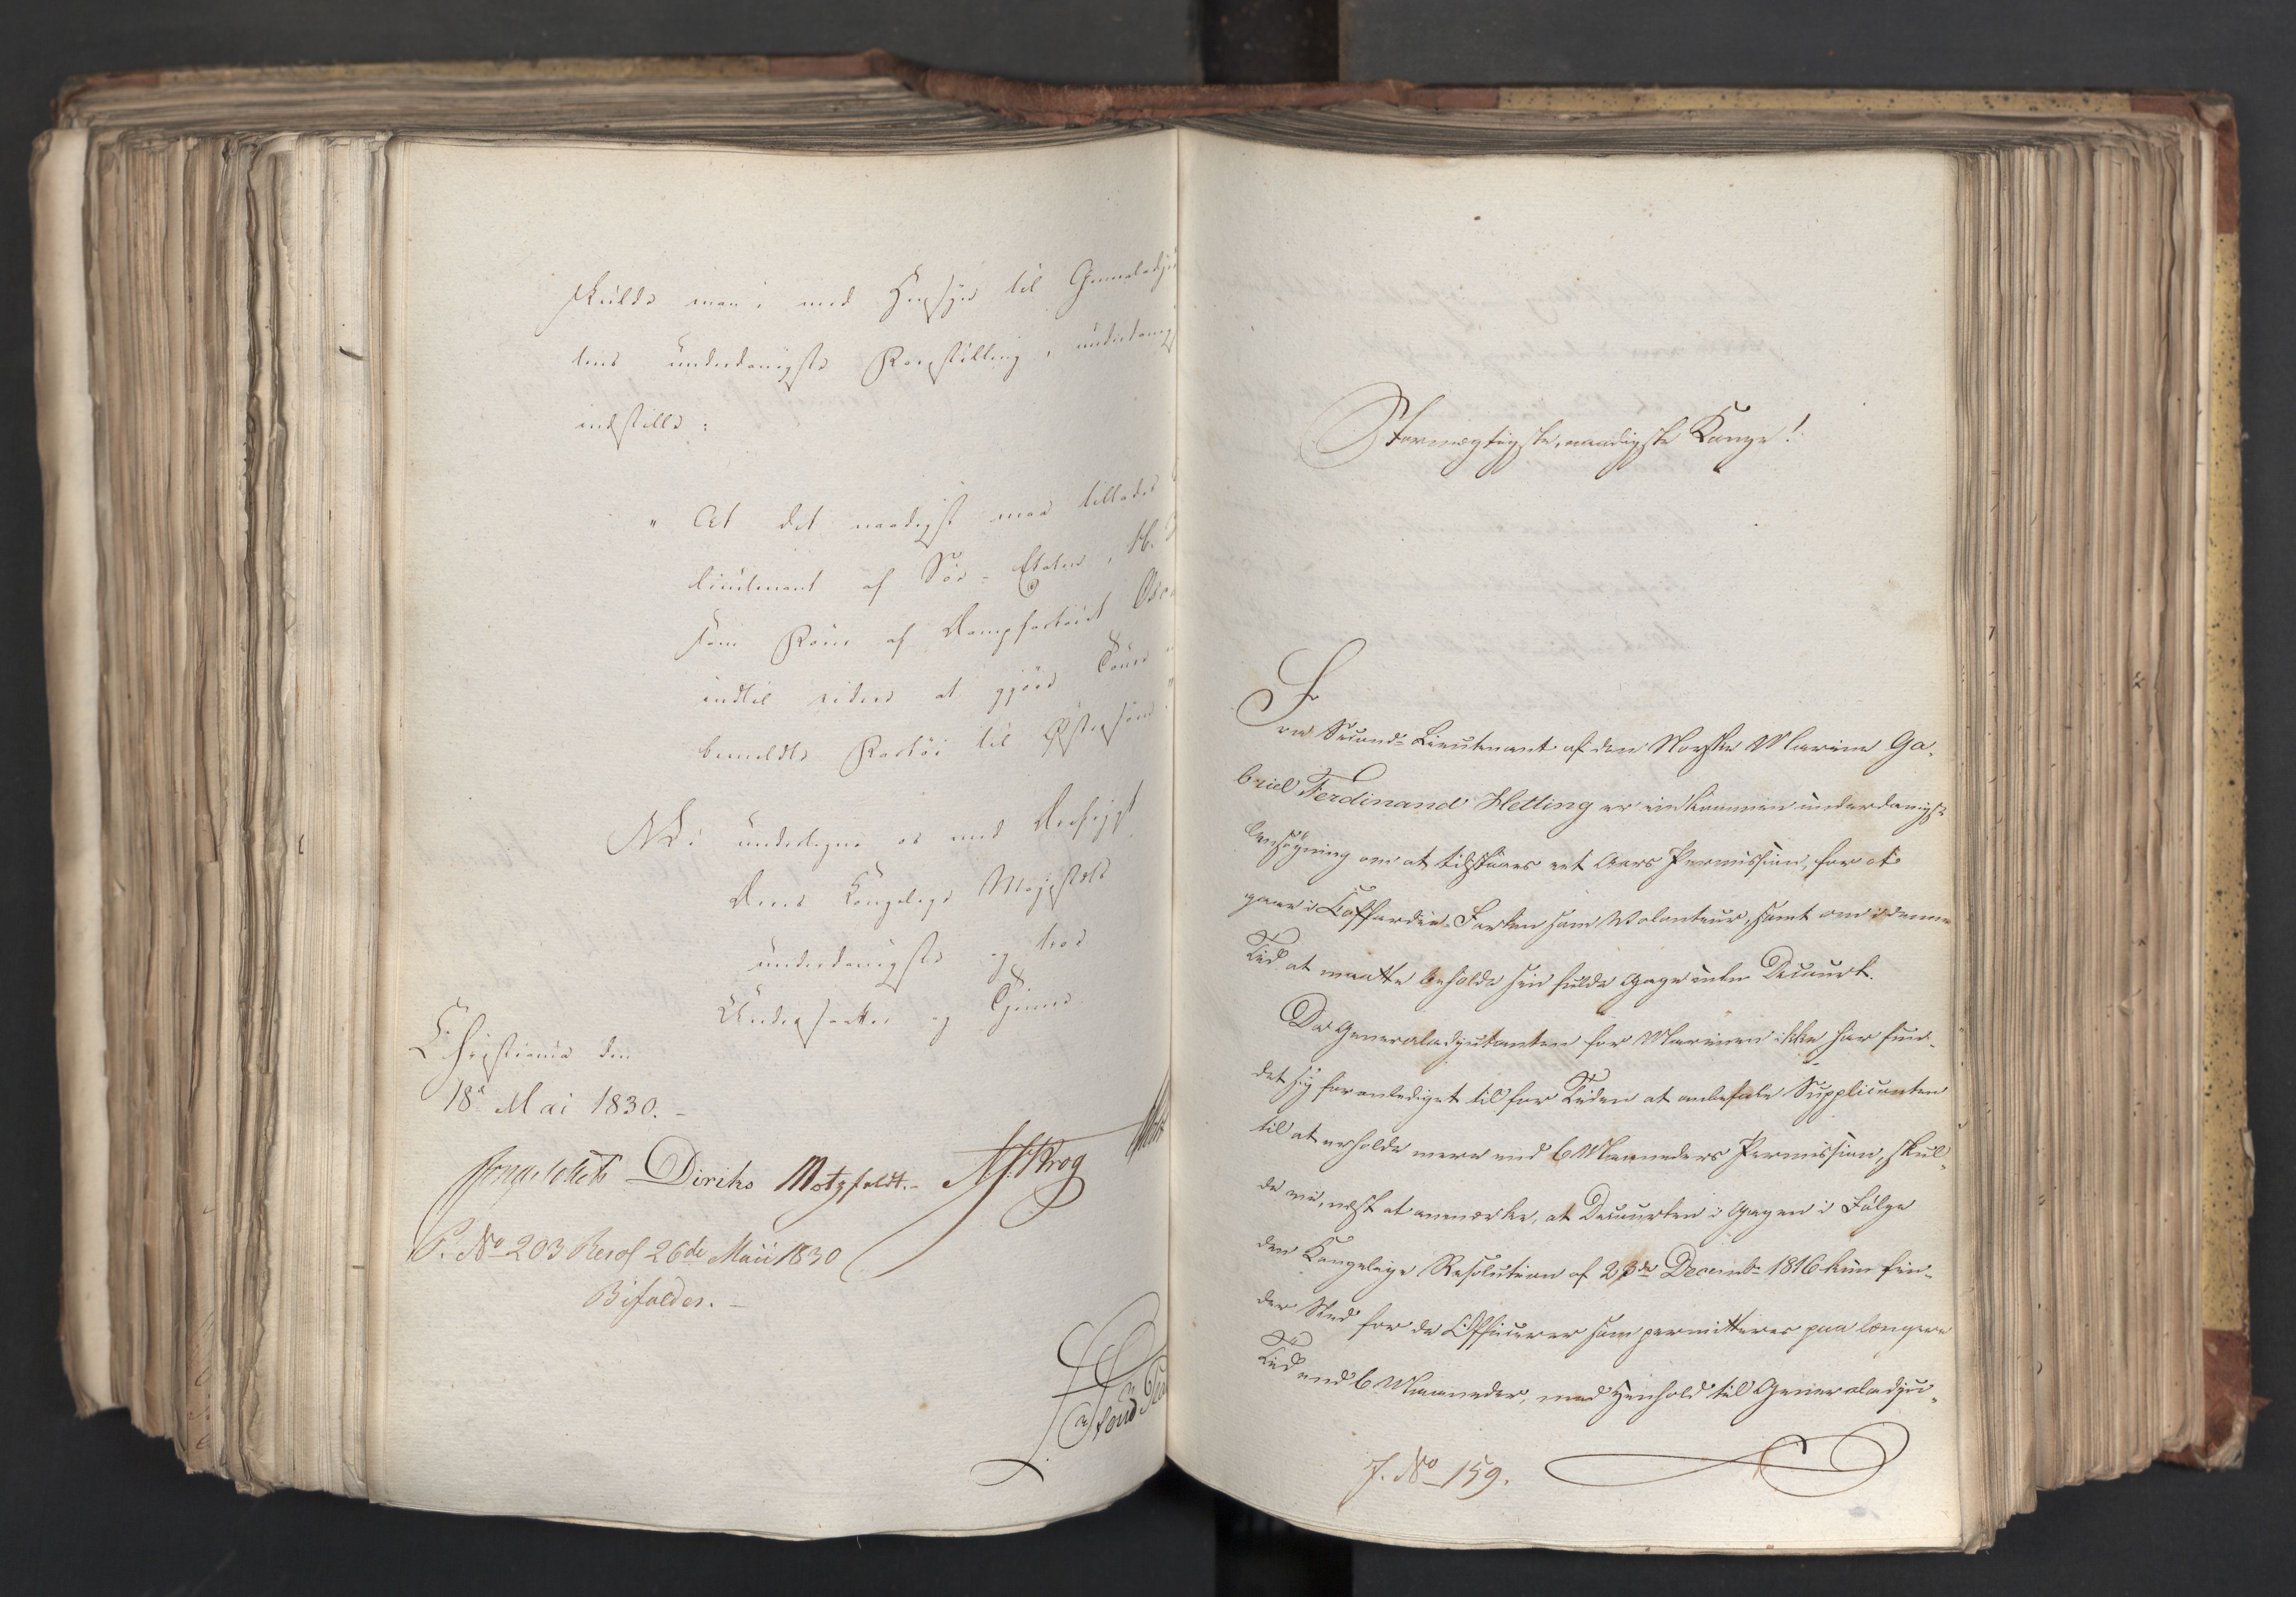 skulde man, med Hensyn til Generaladju
tens underdanigste Forestilling, underdanigst
indstille:
" At det naadigst maa tillades
Lieutenant af Søe-Etaten, H.
som Fører af Dampfartøiet Osca
indtil videre at gjøre Toure
bemeldte Fartøi til Østersøen "
Vi undertegne os med Dybeste
Deres Kongelige Majestæts
underdanigste og troe
Undersaatter og Tjenere
Christiania den
18de Mai 1830.-
Collett Diriks Motzfeldt.- Krog
P. No 203 Resol 26de Maii 1830
Bifaldes.-
Stormægtigste, naadigste Konge!
Fra Second-Lieutenant af den Norske Marine Ga-
briel Ferdinand Hetting er indkommen underdanigst
Ansøgning om at tilstaaes eet Aars Permission, for at
gaae i Coffardie-Farten som Volonteur, samt om i denne
Tid at maatte beholde sin fulde Gage uden Decourt.
Da Generaladjutanten for Marinen ikke har fun-
det sig foranlediget til for Tiden at anbefale Supplicanten
til at erholde mere end 6 Maaneders Permission, skul-
de vi, næst at anmærke, at Decourten i Gagen i Følge
den Kongelige Resolution af 23de Decembr 1816 kun fin-
der Sted for de Officierer som permitteres paa længere
Tid end 6 Maaneder, med Henhold til Generaladju-
J. No 159.